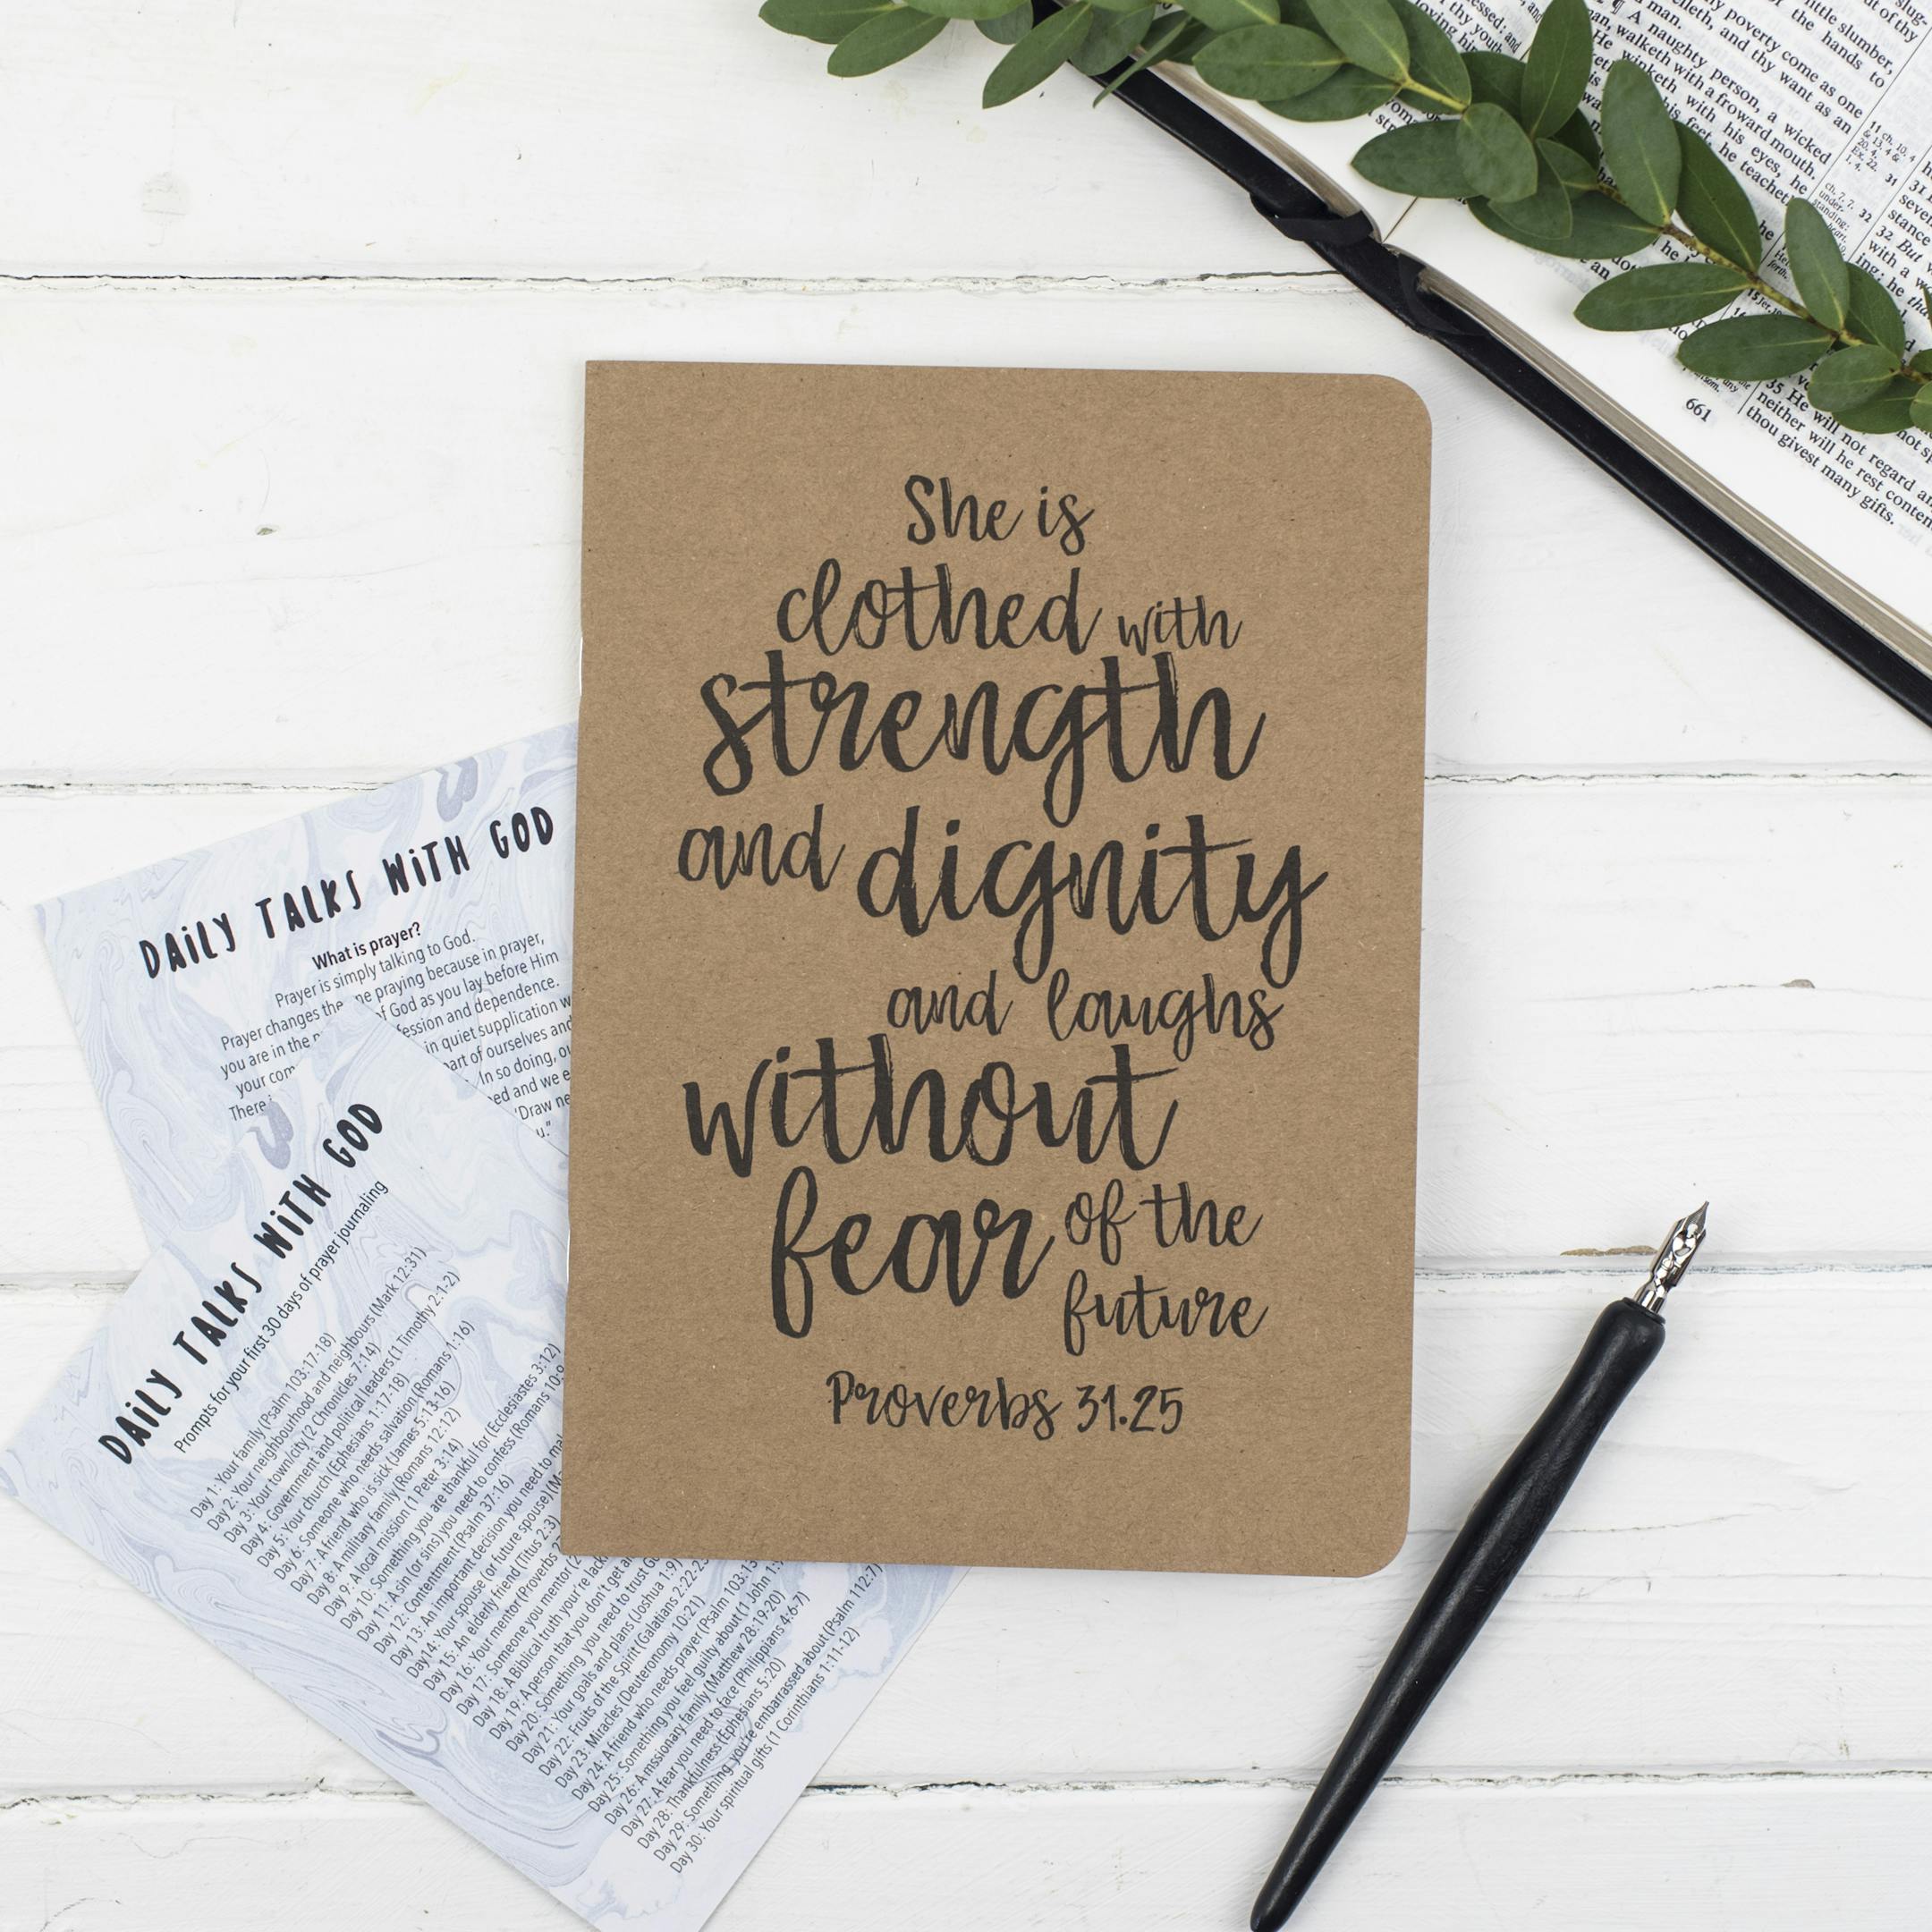 She is
clothed with
strength
and dignity
and laughs
without
fear of the
future
Proverbs 31.25
DAiLY TALKS WiTH GOD
What is prayer?
Prayer is simply talking to God.
Prayer changes the ne praying because in prayer,
you are in the of God as you lay before Him
your fession and dependence.
There in quiet supplication
art of ourselves and
In so doing,
ed and we
"Draw
u."
DAiLY TALKS WiTH GOD
Prompts for your first 30 days of prayer journaling
Day 1: Your family (Psalm 103:17-18)
Day 2: Your neighbourhood and neighbours (Mark 12:31)
Day 3: Your town/city (2 Chronicles 7:14)
Day 4: Government and political leaders (1 Timothy 2:1-2)
Day 5: Your church (Ephesians 1:17-18)
Day 6: Someone who needs salvation (Romans 1:16)
Day 7: A friend who is sick (James 5:13-16)
Day 8: A military family (Romans 12:12)
Day 9: A local mission (1 Peter 3:14)
Day 10: Something you are thankful for (Ecclesiastes 3:12)
Day 11: A sin (or sins) you need to confess (Romans 10:9
Day 12: Contentment (Psalm 37:16)
Day 13: An important decision you need to
Day14: Your spouse (or future spouse)
Day 15: An elderly friend (Titus 2:3)
Day 16: Your mentor (Proverbs
Day 17: Someone you mentor (2
Day 18: A Biblical truth you're
Day 19: A person that you don't get
Day 20: Something you need to trust
Day 21: Your goals and plans (Joshua 1:9)
Day 22: Fruits of the Spirit (Galatians 2:22-2
Day 23: Miracles (Deuteronomy 10:21)
Day 24: A friend who needs prayer (Psalm 103:1
Day 25: Something you feel guilty about (1 John 1:
Day 26: A mssionary family (Matthew 28:19-20)
Day 27: A fear you need to face (Philippians 4:6-7)
Day 28: Thankfulness (Ephesians 5:20)
Day 29: Something you're embarrassed about (Psalm 112:7)
Day 30: Your spiritual gifts (1 Corinthians 1:11-12)
¶ A naughty person, a wicked
man, walketh with a froward mouth.
He winketh with his eyes, he
his feet, he teacheth
661
little slumber,
of the hands to
poverty come as one
and thy want as an
35 He will not regard
neither will he rest
thou givest many gifts.